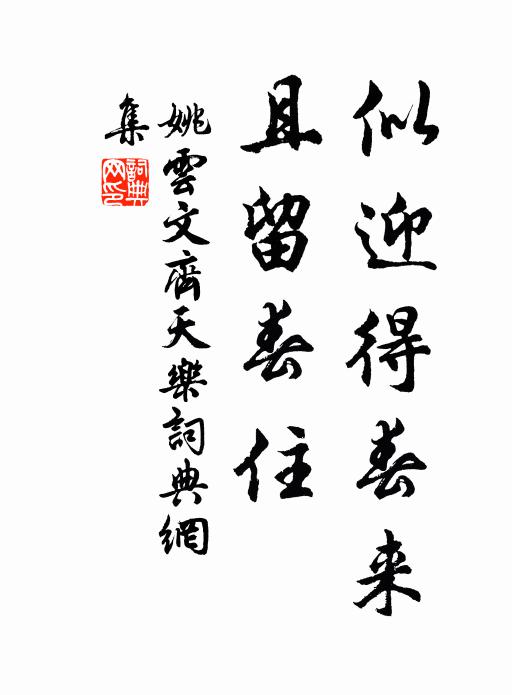 似迎得春来
且留春住
姚雲文齊天樂詞典網
集
詞典
网印